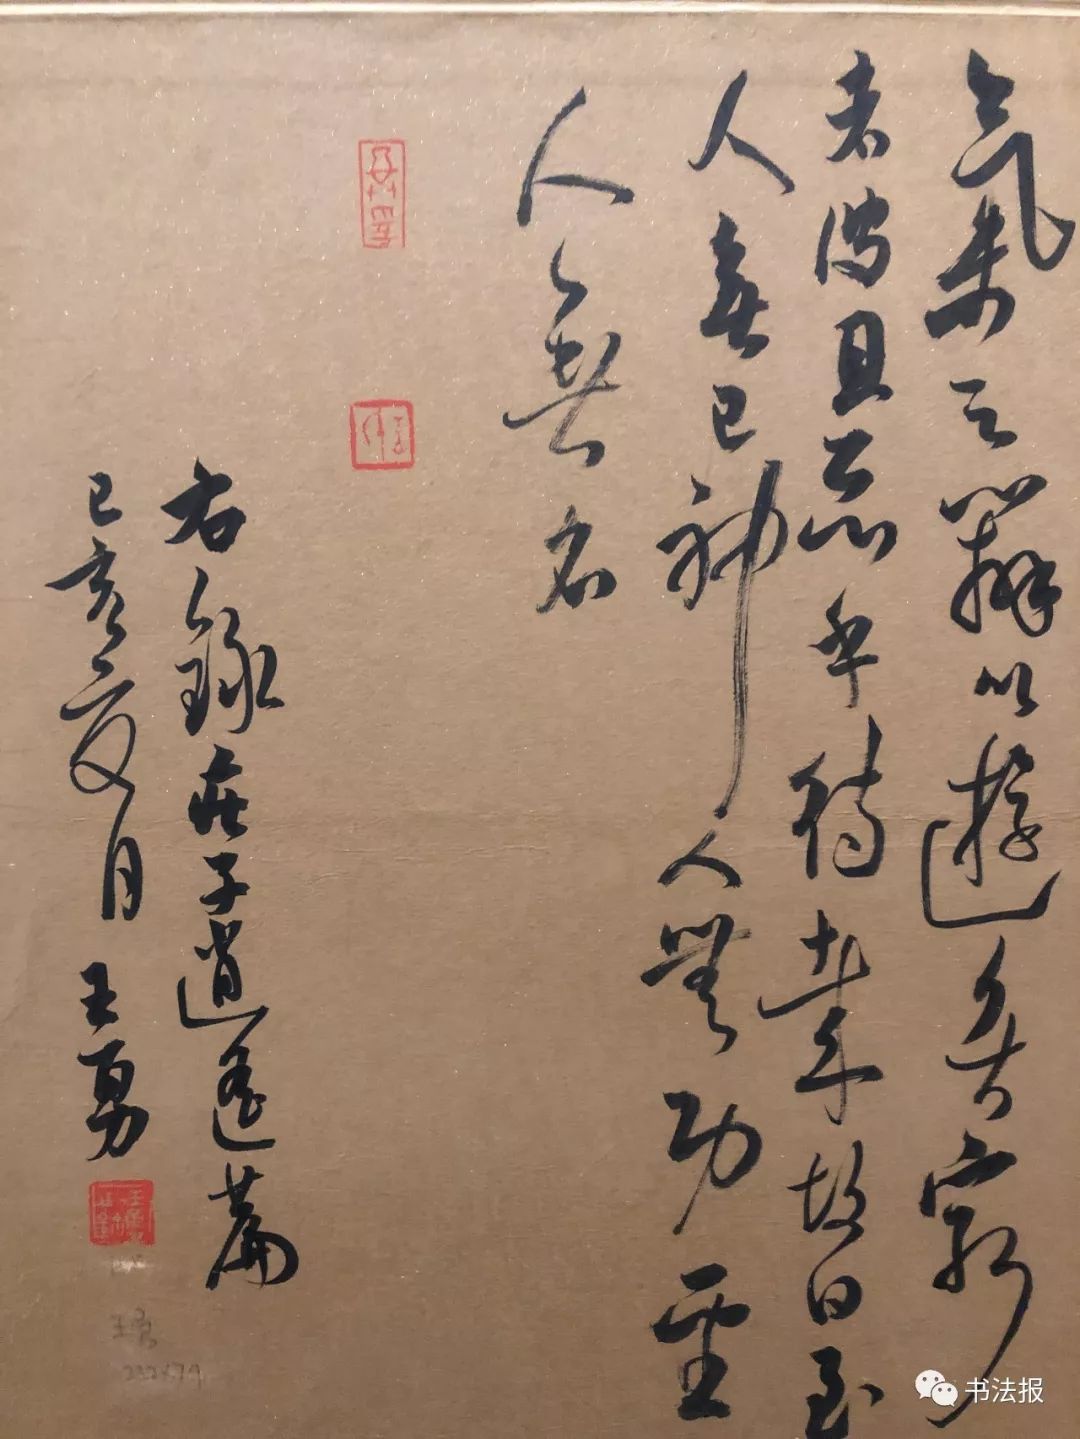 氣之辯以遊無窮
者彼且惡乎待哉故曰至
人無己神人無功聖
人無名
右錄莊子逍遙篇
己亥夏月王勇
王勇
书法报